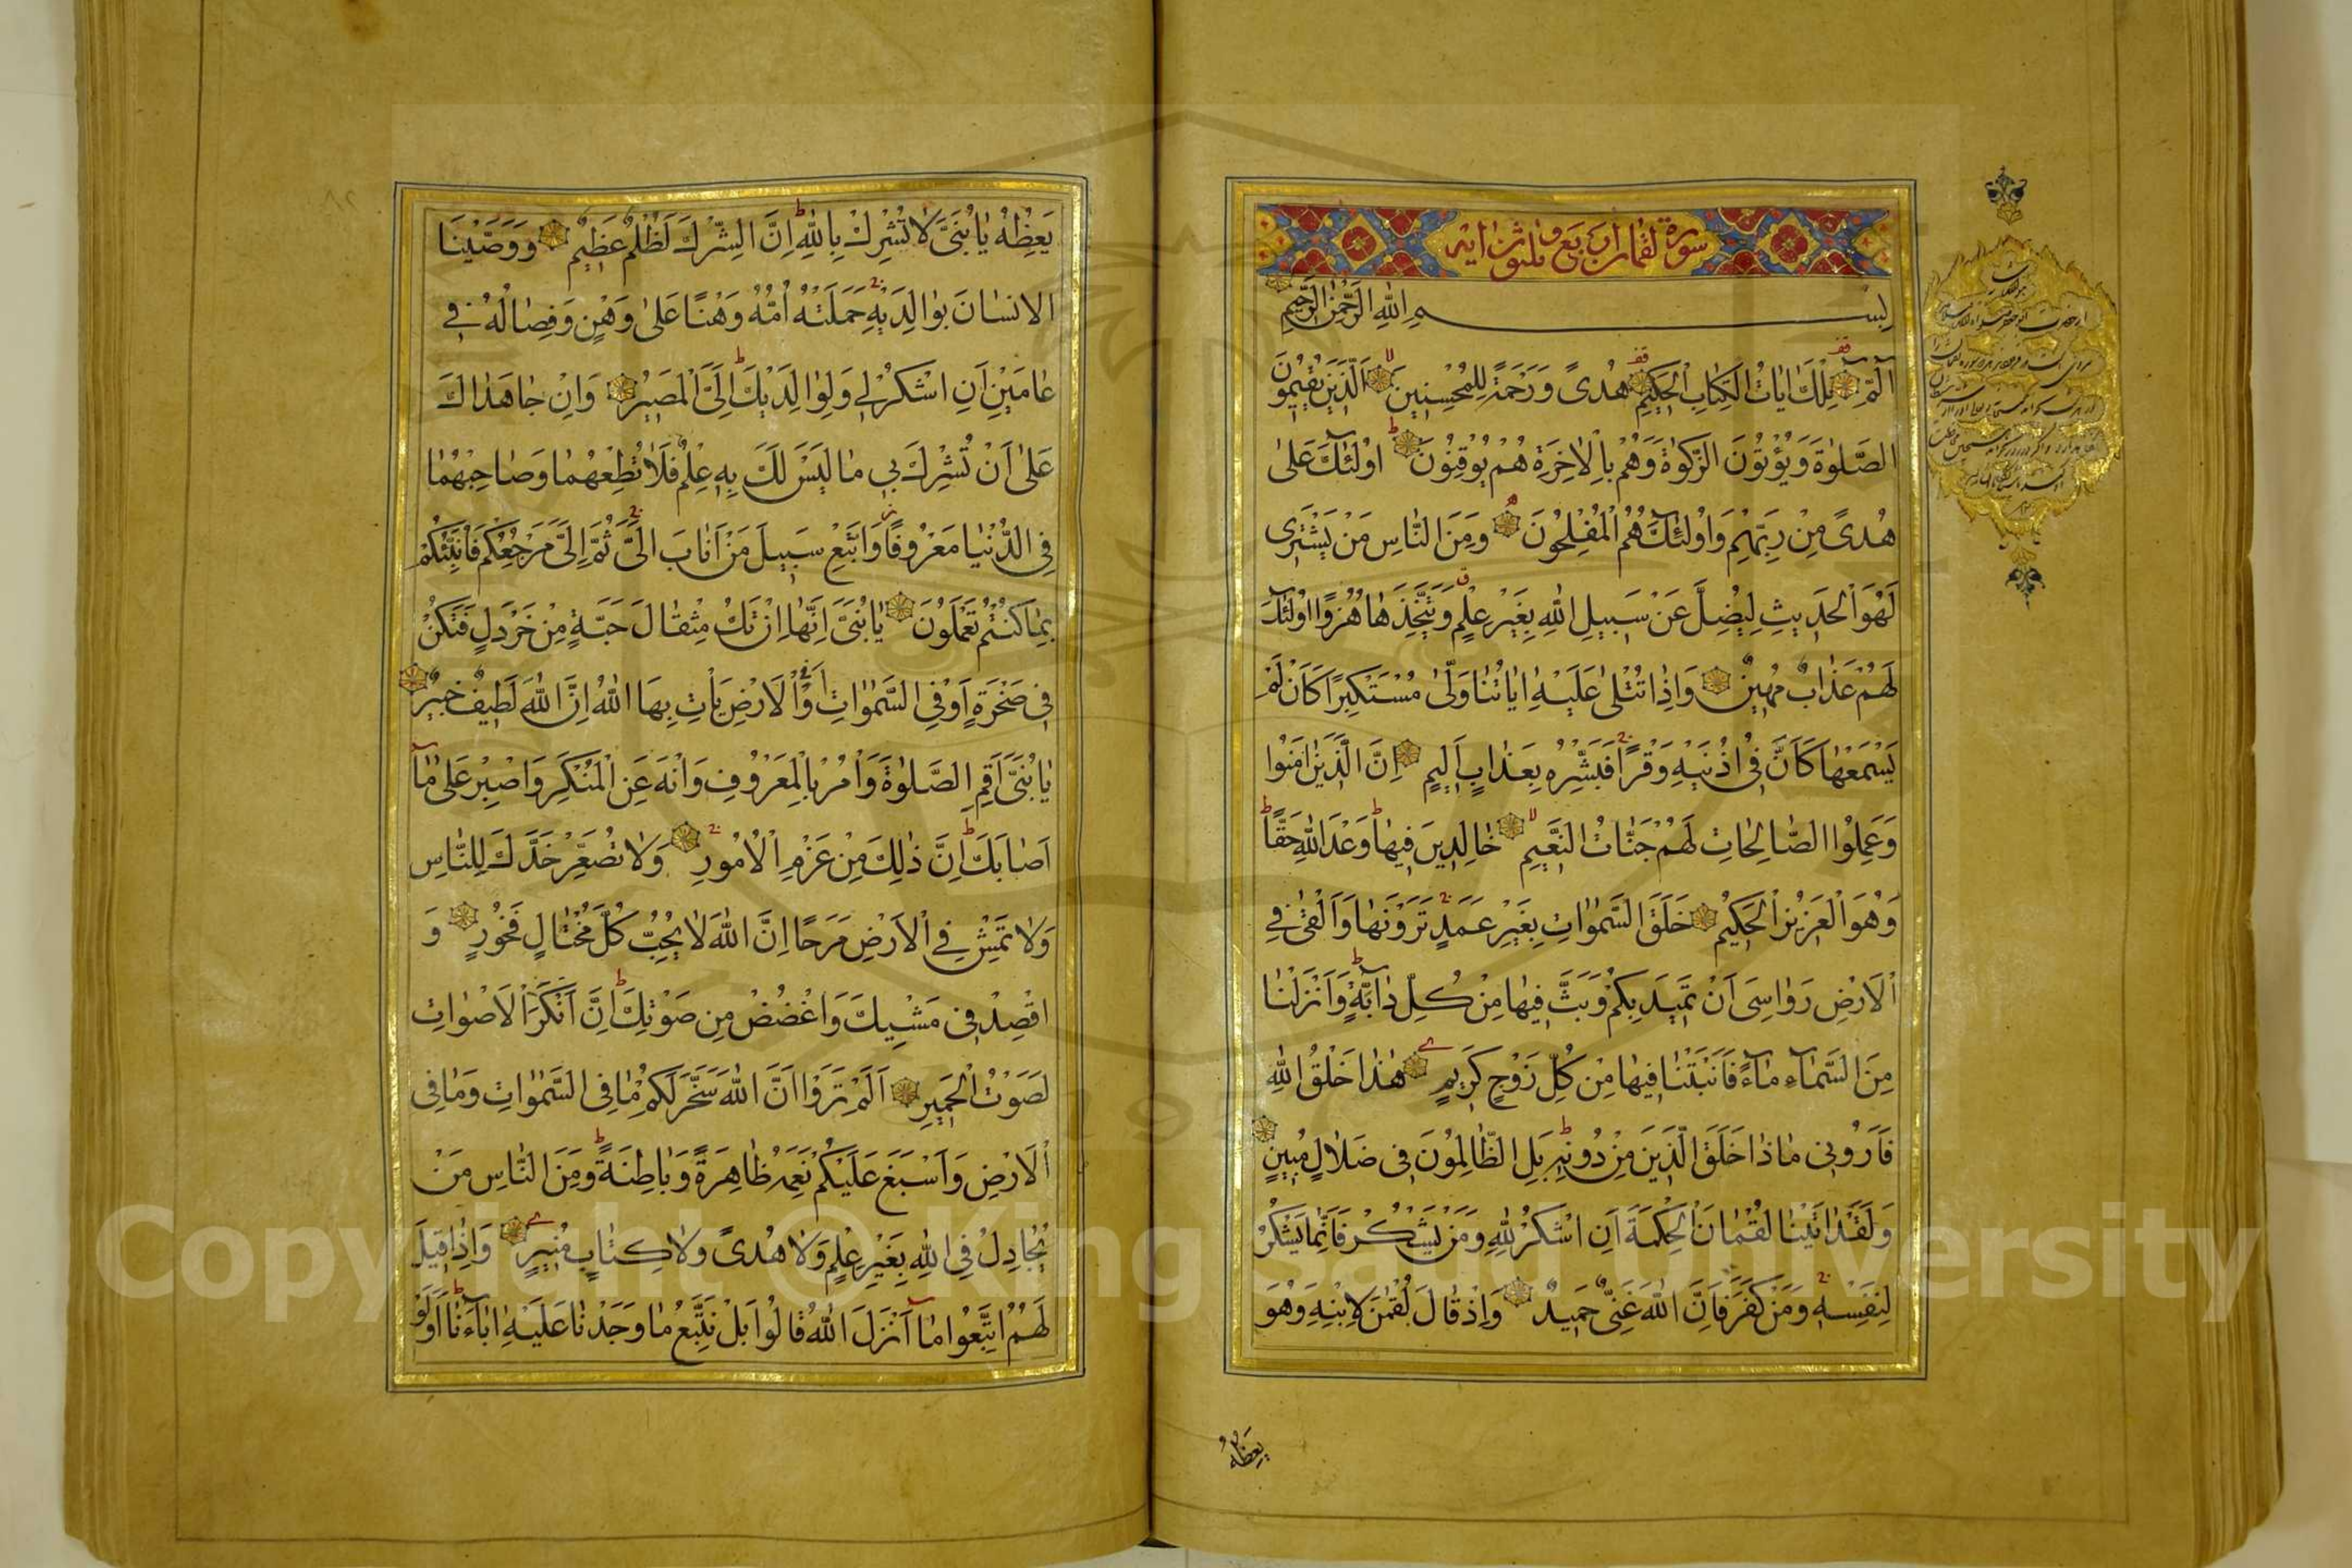 سورة لقمان اربع و ثلثون ايه
بِسْمِ اللهِ الرَّحْمٰنِ الرَّحِيمِ
الٓمٓ تِلْكَ اٰيَاتُ الْكِتَابِ الْحَكِيمِ هُدًى وَرَحْمَةً لِلْمُحْسِنِينَ الَّذِينَ يُقِيمُونَ
الصَّلٰوةَ وَيُؤْتُونَ الزَّكٰوةَ وَهُمْ بِالْاٰخِرَةِ هُمْ يُوقِنُونَ اُولٰئِكَ عَلٰى
هُدًى مِنْ رَبِّهِمْ وَاُولٰئِكَ هُمُ الْمُفْلِحُونَ وَمِنَ النَّاسِ مَنْ يَشْتَرِى
لَهْوَ الْحَدِيثِ لِيُضِلَّ عَنْ سَبِيلِ اللهِ بِغَيْرِ عِلْمٍ وَيَتَّخِذَهَا هُزُوًا اُولٰئِكَ
لَهُمْ عَذَابٌ مُهِينٌ وَاِذَا تُتْلٰى عَلَيْهِ اٰيَاتُنَا وَلّٰى مُسْتَكْبِرًا كَاَنْ لَمْ
يَسْمَعْهَا كَاَنَّ فِى اُذُنَيْهِ وَقْرًا فَبَشِّرْهُ بِعَذَابٍ اَلِيمٍ اِنَّ الَّذِينَ اٰمَنُوا
وَعَمِلُوا الصَّالِحَاتِ لَهُمْ جَنَّاتُ النَّعِيمِ خَالِدِينَ فِيهَا وَعْدَ اللهِ حَقًّا
وَهُوَ الْعَزِيزُ الْحَكِيمُ خَلَقَ السَّمٰوَاتِ بِغَيْرِ عَمَدٍ تَرَوْنَهَا وَاَلْقٰى فِى
الْاَرْضِ رَوَاسِىَ اَنْ تَمِيدَ بِكُمْ وَبَثَّ فِيهَا مِنْ كُلِّ دَابَّةٍ وَاَنْزَلْنَا
مِنَ السَّمَاۤءِ مَاۤءً فَاَنْبَتْنَا فِيهَا مِنْ كُلِّ زَوْجٍ كَرِيمٍ هٰذَا خَلْقُ اللهِ
فَاَرُونِى مَاذَا خَلَقَ الَّذِينَ مِنْ دُونِهِ بَلِ الظَّالِمُونَ فِى ضَلَالٍ مُبِينٍ
وَلَقَدْ اٰتَيْنَا لُقْمَانَ الْحِكْمَةَ اَنِ اشْكُرْ لِلّٰهِ وَمَنْ يَشْكُرْ فَاِنَّمَا يَشْكُرُ
لِنَفْسِهِ وَمَنْ كَفَرَ فَاِنَّ اللهَ غَنِىٌّ حَمِيدٌ وَاِذْ قَالَ لُقْمٰنُ لِابْنِهِ وَهُوَ
يَعِظُهُ
يَعِظُهُ يَا بُنَىَّ لَا تُشْرِكْ بِاللهِ اِنَّ الشِّرْكَ لَظُلْمٌ عَظِيمٌ وَوَصَّيْنَا
الْاِنْسَانَ بِوَالِدَيْهِ حَمَلَتْهُ اُمُّهُ وَهْنًا عَلٰى وَهْنٍ وَفِصَالُهُ فِى
عَامَيْنِ اَنِ اشْكُرْ لِى وَلِوَالِدَيْكَ اِلَىَّ الْمَصِيرُ وَاِنْ جَاهَدَاكَ
عَلٰى اَنْ تُشْرِكَ بِى مَا لَيْسَ لَكَ بِهِ عِلْمٌ فَلَا تُطِعْهُمَا وَصَاحِبْهُمَا
فِى الدُّنْيَا مَعْرُوفًا وَاتَّبِعْ سَبِيلَ مَنْ اَنَابَ اِلَىَّ ثُمَّ اِلَىَّ مَرْجِعُكُمْ فَاُنَبِّئُكُمْ
بِمَا كُنْتُمْ تَعْمَلُونَ يَا بُنَىَّ اِنَّهَا اِنْ تَكُ مِثْقَالَ حَبَّةٍ مِنْ خَرْدَلٍ فَتَكُنْ
فِى صَخْرَةٍ اَوْ فِى السَّمٰوَاتِ اَوْ فِى الْاَرْضِ يَاْتِ بِهَا اللهُ اِنَّ اللهَ لَطِيفٌ خَبِيرٌ
يَا بُنَىَّ اَقِمِ الصَّلٰوةَ وَاْمُرْ بِالْمَعْرُوفِ وَانْهَ عَنِ الْمُنْكَرِ وَاصْبِرْ عَلٰى مَاۤ
اَصَابَكَ اِنَّ ذٰلِكَ مِنْ عَزْمِ الْاُمُورِ وَلَا تُصَعِّرْ خَدَّكَ لِلنَّاسِ
وَلَا تَمْشِ فِى الْاَرْضِ مَرَحًا اِنَّ اللهَ لَا يُحِبُّ كُلَّ مُخْتَالٍ فَخُورٍ وَ
اقْصِدْ فِى مَشْيِكَ وَاغْضُضْ مِنْ صَوْتِكَ اِنَّ اَنْكَرَ الْاَصْوَاتِ
لَصَوْتُ الْحَمِيرِ اَلَمْ تَرَوْا اَنَّ اللهَ سَخَّرَ لَكُمْ مَا فِى السَّمٰوَاتِ وَمَا فِى
الْاَرْضِ وَاَسْبَغَ عَلَيْكُمْ نِعَمَهُ ظَاهِرَةً وَبَاطِنَةً وَمِنَ النَّاسِ مَنْ
يُجَادِلُ فِى اللهِ بِغَيْرِ عِلْمٍ وَلَا هُدًى وَلَا كِتَابٍ مُنِيرٍ وَاِذَا قِيلَ
لَهُمُ اتَّبِعُوا مَاۤ اَنْزَلَ اللهُ قَالُوا بَلْ نَتَّبِعُ مَا وَجَدْنَا عَلَيْهِ اٰبَاۤءَنَا اَوَلَوْ
Copyright © King Saud University